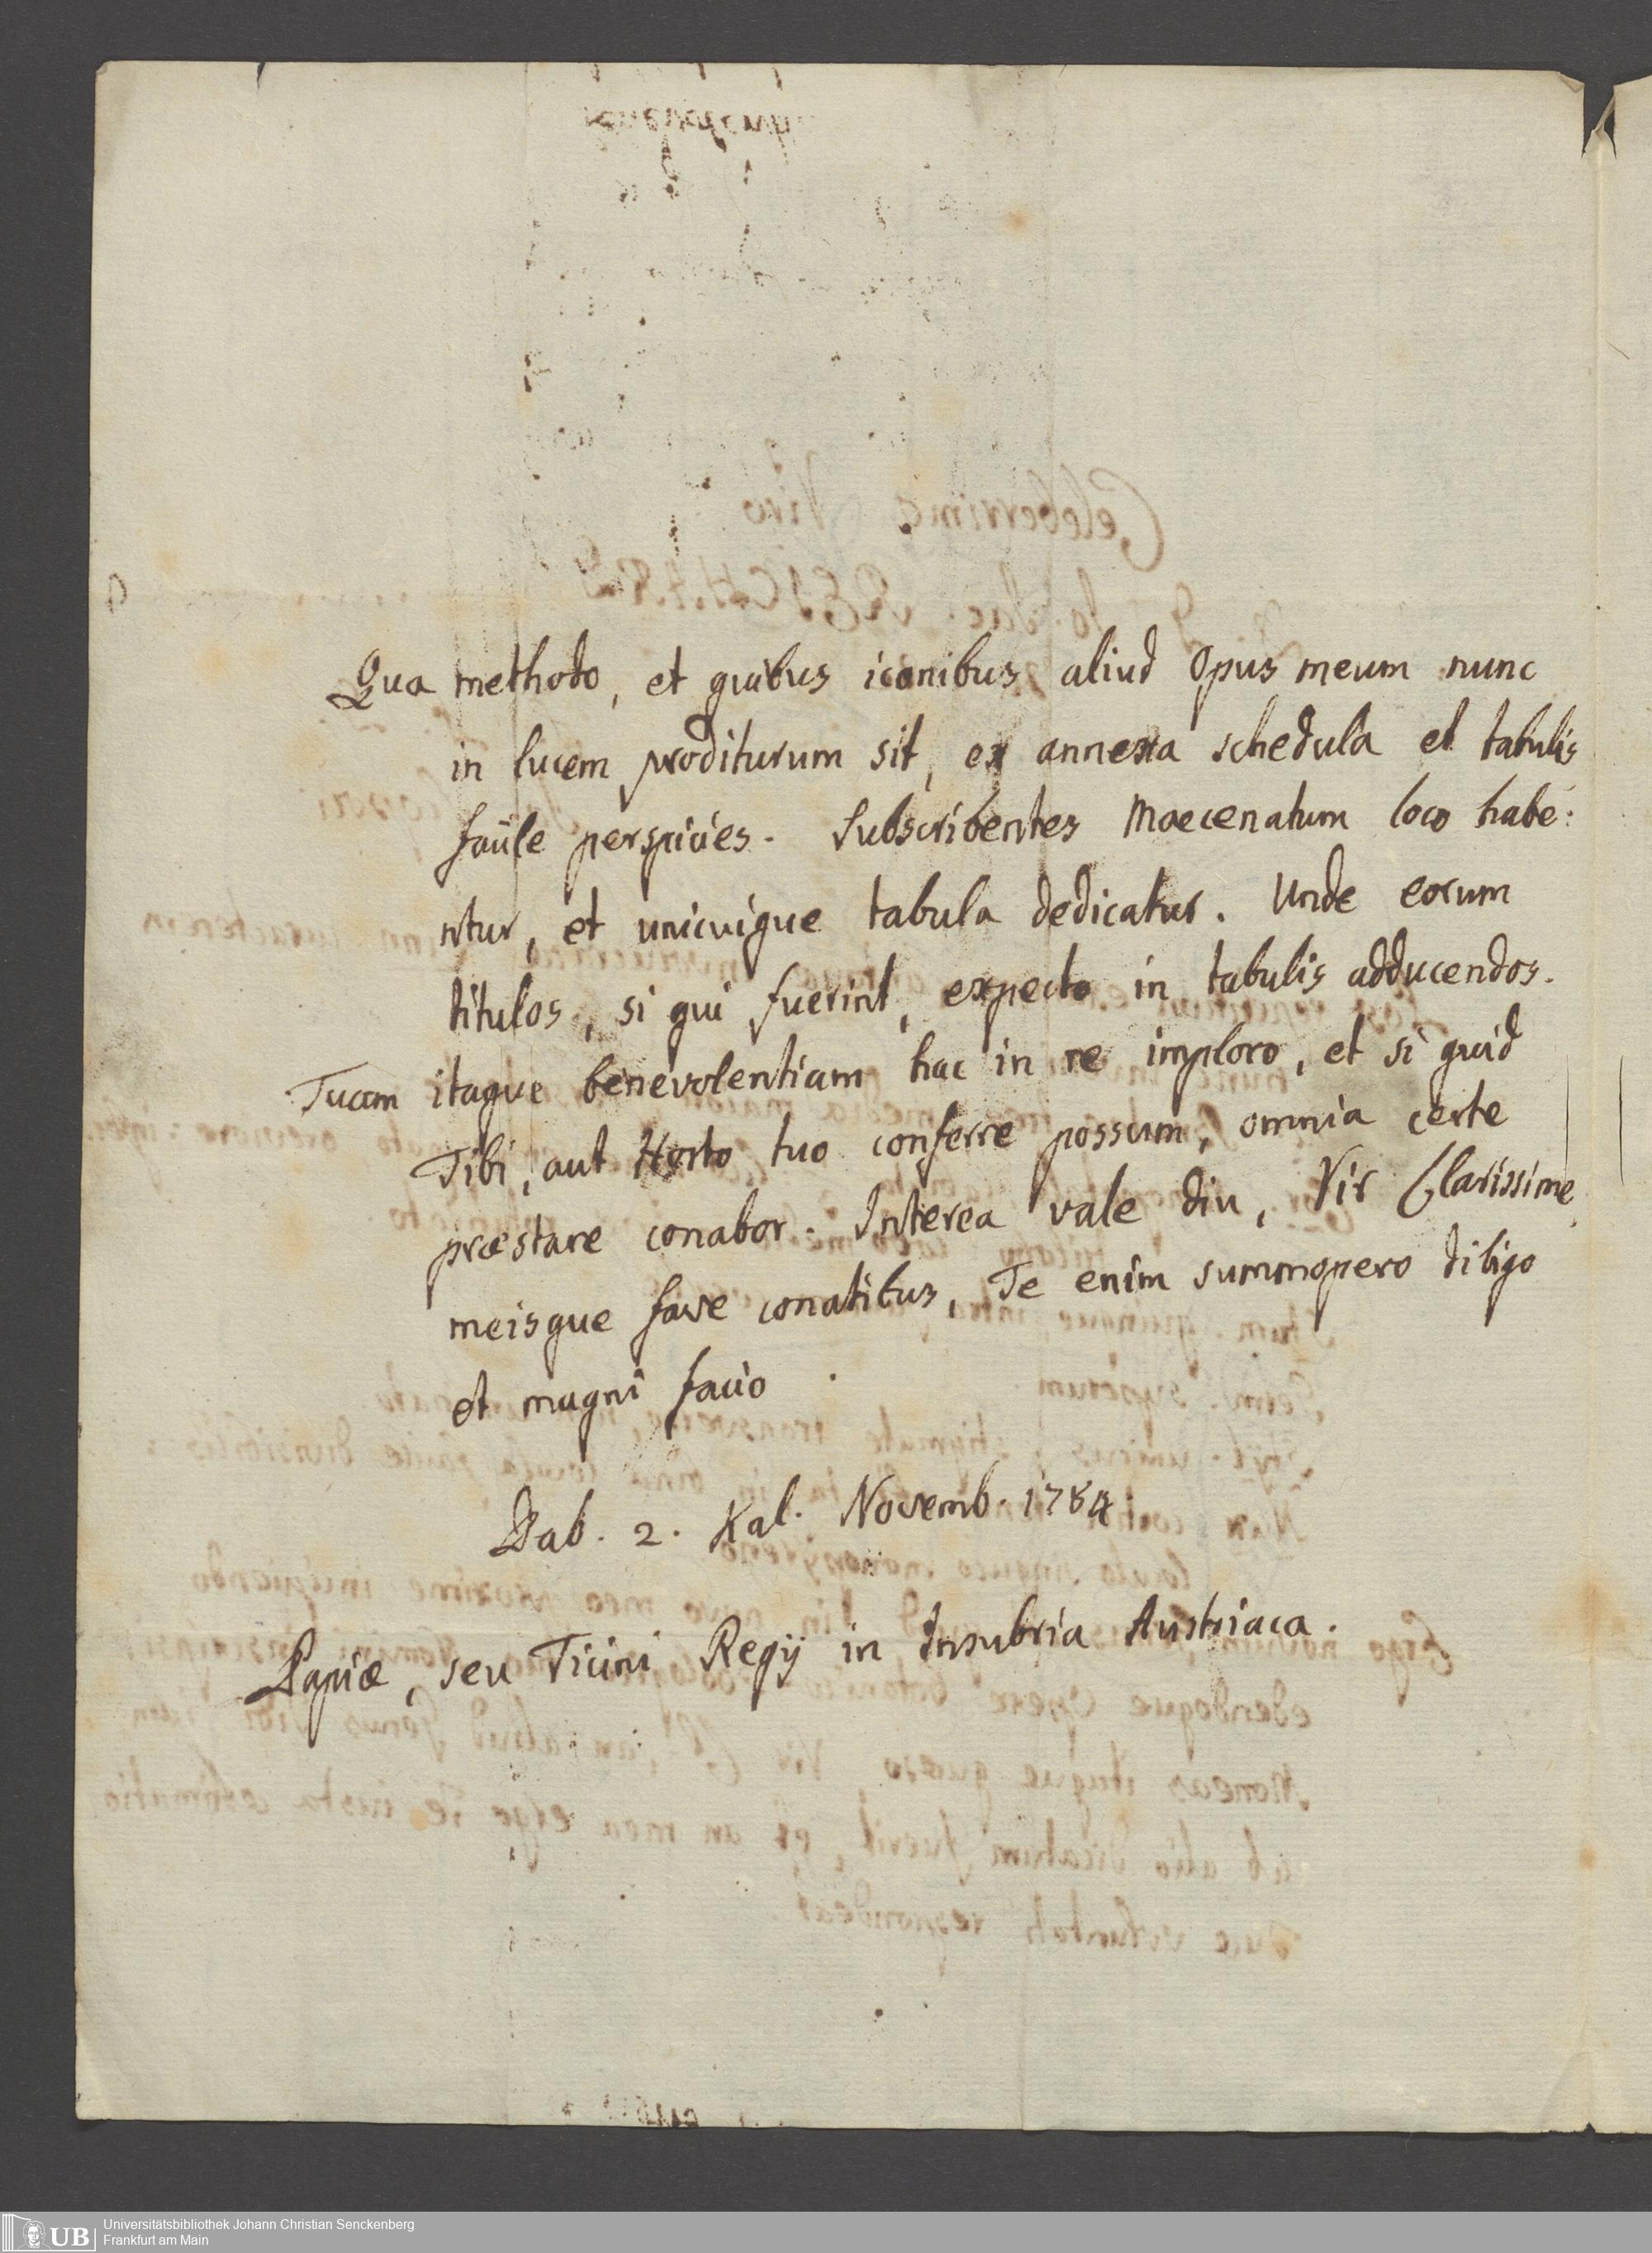 Qua methodo, et quibus iconibus aliud Opus meum nunc
in lucem proditurum sit, ex annexa schedula et tabulis
facile perspicies. Subscribentes Maecenatum loco habe:
ntur, et unicuique tabula dedicatur. Unde eorum
titulos, si qui fuerint, expecto in tabulis adducendos.
Tuam itaque benevolentiam hac in re imploro, et si quid
Tibi, aut Horto tuo conferre possum, omnia certe
præstare conabor. Interea vale diu, Vir Clarissime,
meisque fave conatibus, Te enim summopero diligo
et magni facio.
Dab. 2. Kal. Novemb. 1784.
Papiæ, seu Ticini Regij in Insubria Austriaca.
UB Universitätsbibliothek Johann Christian Senckenberg
Frankfurt am Main